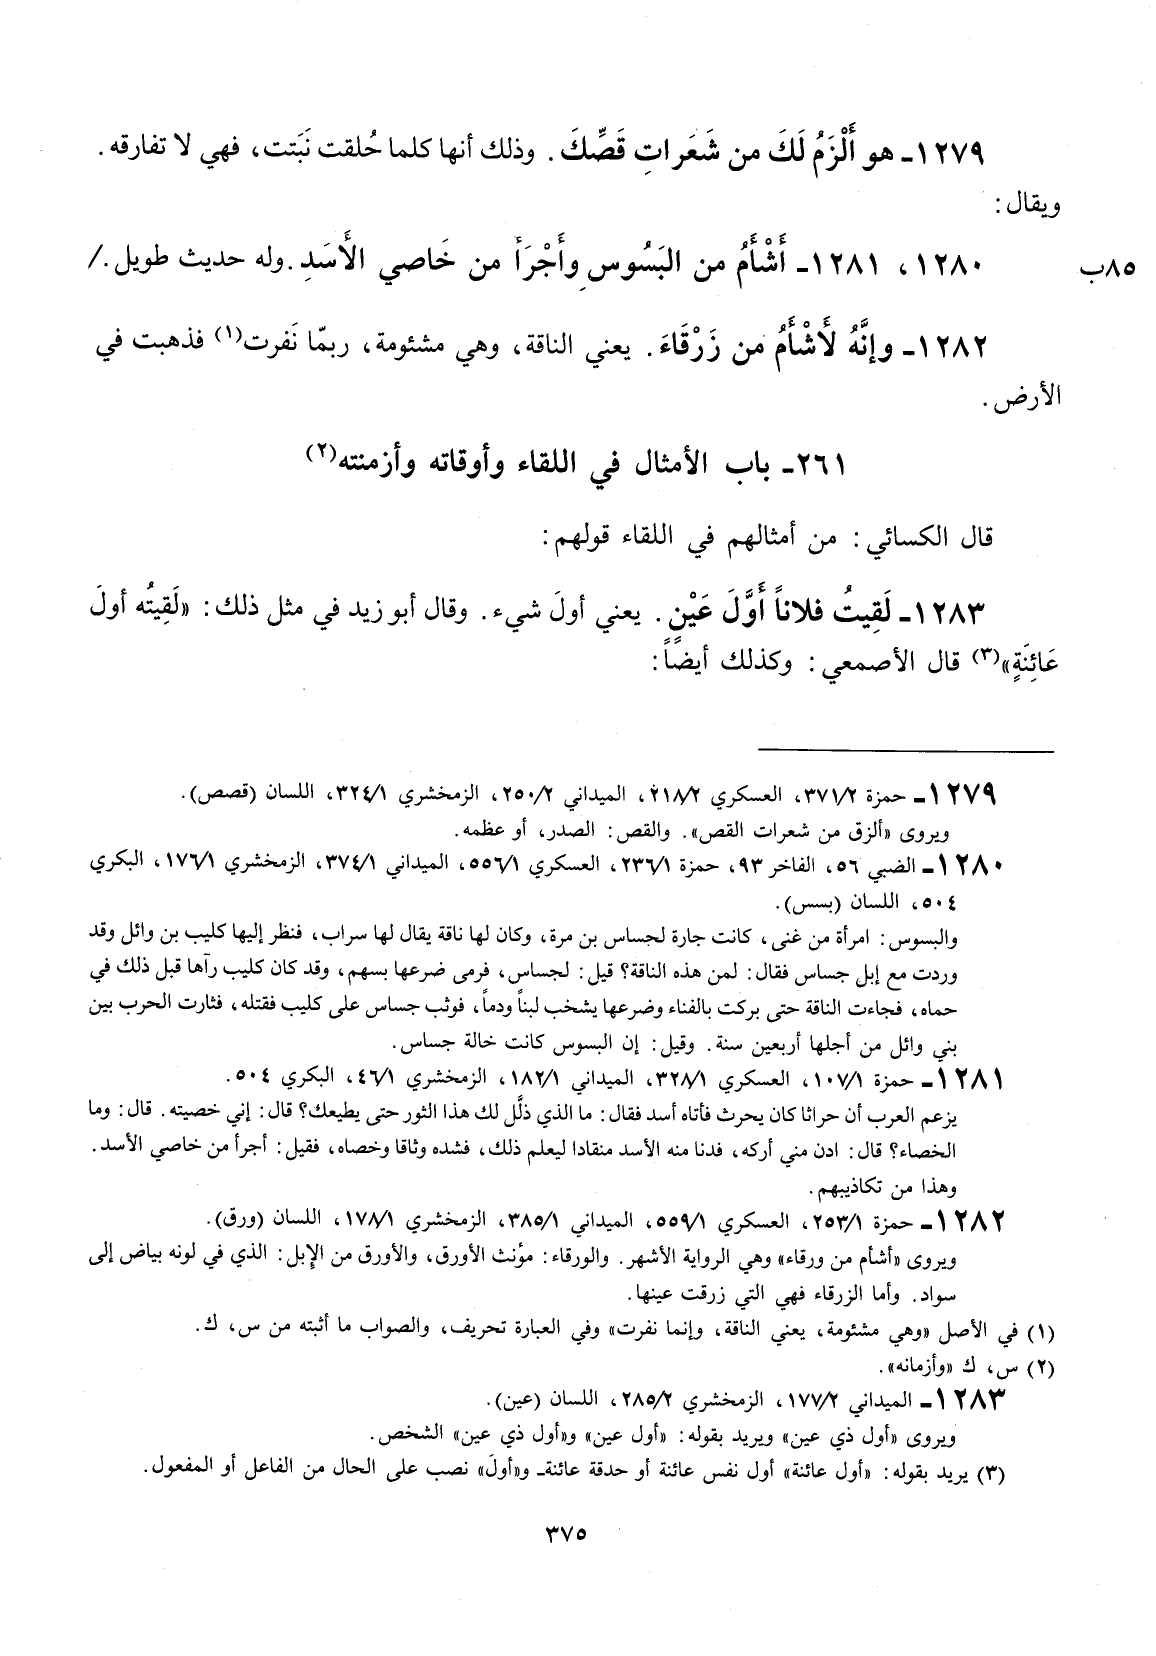 ١٢٧٩ـ هو أَلْزَمُ لَكَ من شَعَراتِ قَصِّكَ. وذلك أنها كلما حُلقت نَبَتت، فهي لا تفارقه.
ويقال:
١٢٨٠، ١٢٨١ـ أَشْأَمُ من البَسُوسِ وأَجْرَأ من خَاصي الأَسَدِ. وله حديث طويل./ ٨٥ب
١٢٨٢ـ وإنَّهُ لَأَشْأَمُ من زَرْقَاءَ. يعني الناقة، وهي مشئومة، ربمّا نَفرت(١) فذهبت في
الأرض.
٢٦١ـ باب الأمثال في اللقاء وأوقاته وأزمنته(٢)
قال الكسائي: من أمثالهم في اللقاء قولهم:
١٢٨٣ـ لَقِيتُ فلاناً أَوَّلَ عَيْنٍ. يعني أولَ شيء. وقال أبو زيد في مثل ذلك: «لَقِيتُه أولَ
عَائِنَةٍ»(٣) قال الأصمعي: وكذلك أيضاً:
١٢٧٩ـ حمزة ٣٧١/٢، العسكري ٢١٨/٢، الميداني ٢٥٠/٢، الزمخشري ٣٢٤/١، اللسان (قصص).
ويروى «ألزق من شعرات القص». والقص: الصدر، أو عظمه.
١٢٨٠ـ الضبي ٥٦، الفاخر ٩٣، حمزة ٢٣٦/١، العسكري ٥٥٦/١، الميداني ٣٧٤/١، الزمخشري ١٧٦/١، البكري
٥٠٤، اللسان (بسس).
والبسوس: امرأة من غنى، كانت جارة لجساس بن مرة، وكان لها ناقة يقال لها سراب، فنظر إليها كليب بن وائل وقد
وردت مع إبل جساس فقال: لمن هذه الناقة؟ قيل: لجساس، فرمى ضرعها بسهم، وقد كان كليب رآها قبل ذلك في
حماه، فجاءت الناقة حتى بركت بالفناء وضرعها يشخب لبناً ودماً، فوثب جساس على كليب فقتله، فثارت الحرب بين
بني وائل من أجلها أربعين سنة. وقيل: إن البسوس كانت خالة جساس.
١٢٨١ـ حمزة ١٠٧/١، العسكري ٣٢٨/١، الميداني ١٨٢/١، الزمخشري ٤٦/١، البكري ٥٠٤.
يزعم العرب أن حراثا كان يحرث فأتاه أسد فقال: ما الذي ذلَّل لك هذا الثور حتى يطيعك؟ قال: إني خصيته. قال: وما
الخصاء؟ قال: ادن مني أركه، فدنا منه الأسد منقادا ليعلم ذلك، فشده وثاقا وخصاه، فقيل: أجرأ من خاصي الأسد.
وهذا من تكاذيبهم.
١٢٨٢ـ حمزة ٢٥٣/١، العسكري ٥٥٩/١، الميداني ٣٨٥/١، الزمخشري ١٧٨/١، اللسان (ورق).
ويروى «أشأم من ورقاء» وهي الرواية الأشهر. والورقاء: مؤنث الأورق، والأورق من الإِبل: الذي في لونه بياض إلى
سواد. وأما الزرقاء فهي التي زرقت عينها.
(١) في الأصل «وهي مشئومة، يعني الناقة، وإنما نفرت» وفي العبارة تحريف، والصواب ما أثبته من س، ك.
(٢) س، ك «وأزمانه».
١٢٨٣ـ الميداني ١٧٧/٢، الزمخشري ٢٨٥/٢، اللسان (عين).
ويروى «أول ذي عين» ويريد بقوله: «أول عين» و«أول ذي عين» الشخص.
(٣) يريد بقوله: «أول عائنة» أول نفس عائنة أو حدقة عائنةـ و«أولَ» نصب على الحال من الفاعل أو المفعول.
٣٧٥